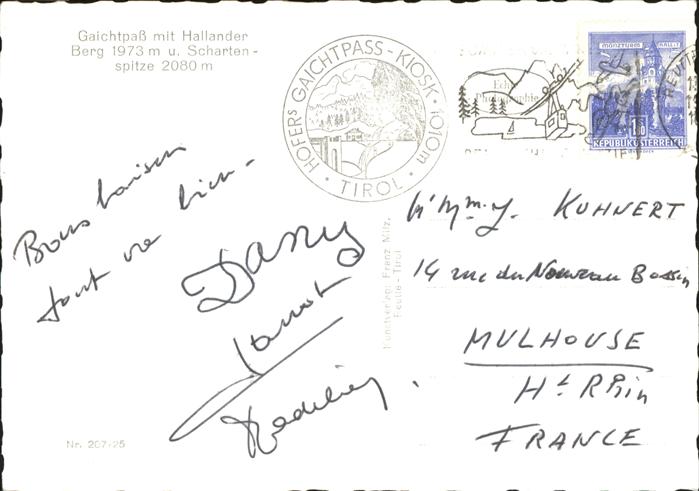 Gaichtpaß mit Hallander
Berg 1973 m u. Scharten-
spitze 2080 m
HOFERS GAICHTPASS-KIOSK · 1010 m
· TIROL ·
Echte
Photographie
MÜNZTURM HALL i.T.
1.50
REPUBLIK ÖSTERREICH
REUTTE
Bons baisers
Dany
Kunstverlag Franz Milz,
Reutte-Tirol
M. Mme J. KUHNERT
14 rue du Nouveau Bassin
MULHOUSE
Ht Rhin
FRANCE
Nr. 207/25